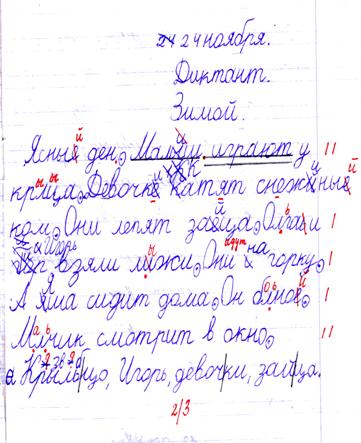 24 24 ноября.
Диктант.
Зимой.
Ясные ден. Малди играют у
крица. Девочке катят снежные
ком. Они лепят заеца. Олга и
Игорь взяли лжи. Они на горку.
А яша сидит дома. Он болной.
Малчик смотрит в окно.
Крыльцо, Игорь, девочки, зайца.
2/3